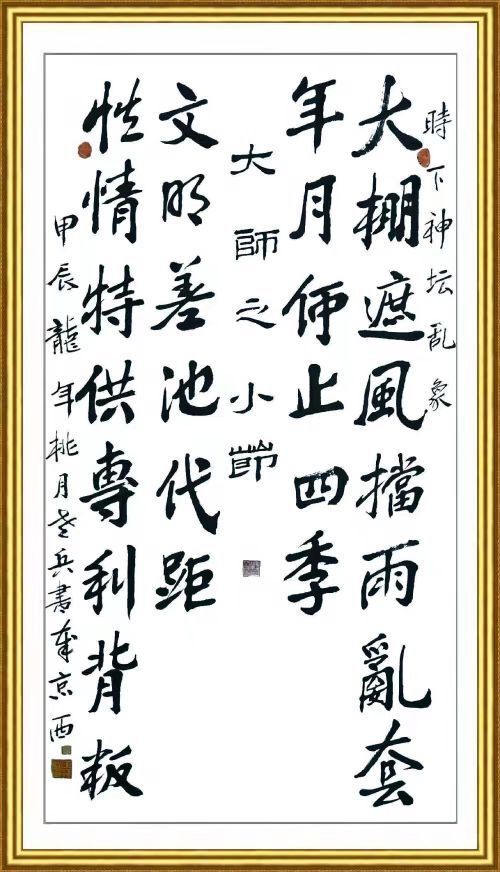 時下神坛乱象
大棚遮風擋雨亂套
年月何止四季
大師之小節
文明差池代距
性情特供專利背叛
甲辰龍年桃月老兵書京西